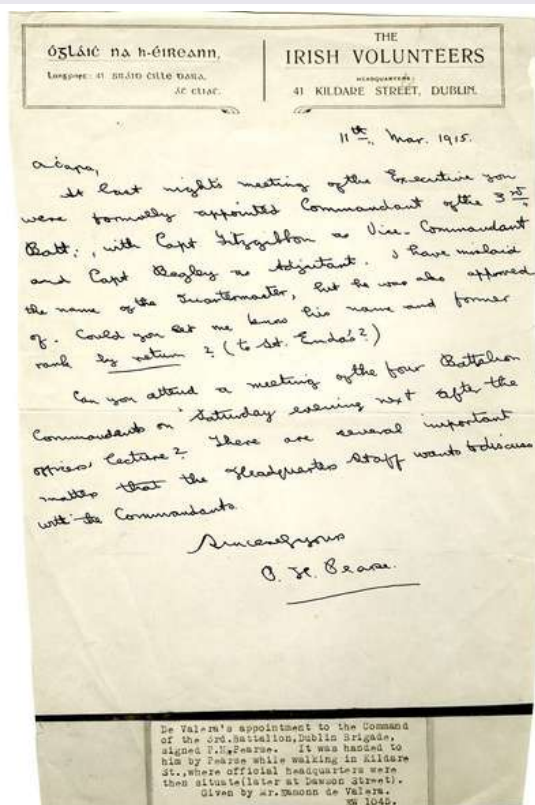 ógláiċ na h-éireann,
41 sráid ċille dara,
áṫ cliaṫ.
THE
IRISH VOLUNTEERS
HEADQUARTERS:
41 KILDARE STREET, DUBLIN.
11th. Mar. 1915.
A ċara,
At last night's meeting of the Executive you
were formally appointed Commandant of the 3rd
Batt:, with Capt Fitzgibbon as Vice-Commandant
and Capt Begley as Adjutant. I have mislaid
the name of the Quartermaster, but he was also approved
of. Could you let me know his name and former
rank by return? (to St. Enda's?)
Can you attend a meeting of the four Battalion
Commandants on Saturday evening next after the
officers' lecture? There are several important
matters that the Headquarters Staff wants to discuss
with the Commandants.
Sincerely yours
P. H. Pearse.
De Valera's appointment to the Command
of the 3rd.Battalion,Dublin Brigade,
signed P.H.Pearse. It was handed to
him by Pearse while walking in Kildare
St.,where official headquarters were
then situate(later at Dawson Street).
Given by Mr.Eamonn de Valera.
EW 1045.